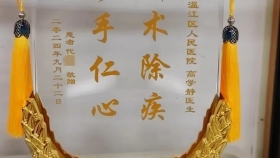 温江区人民医院 高学静医生
术除疾
手仁心
患者 代 敬赠
二〇二四年九月二十二日